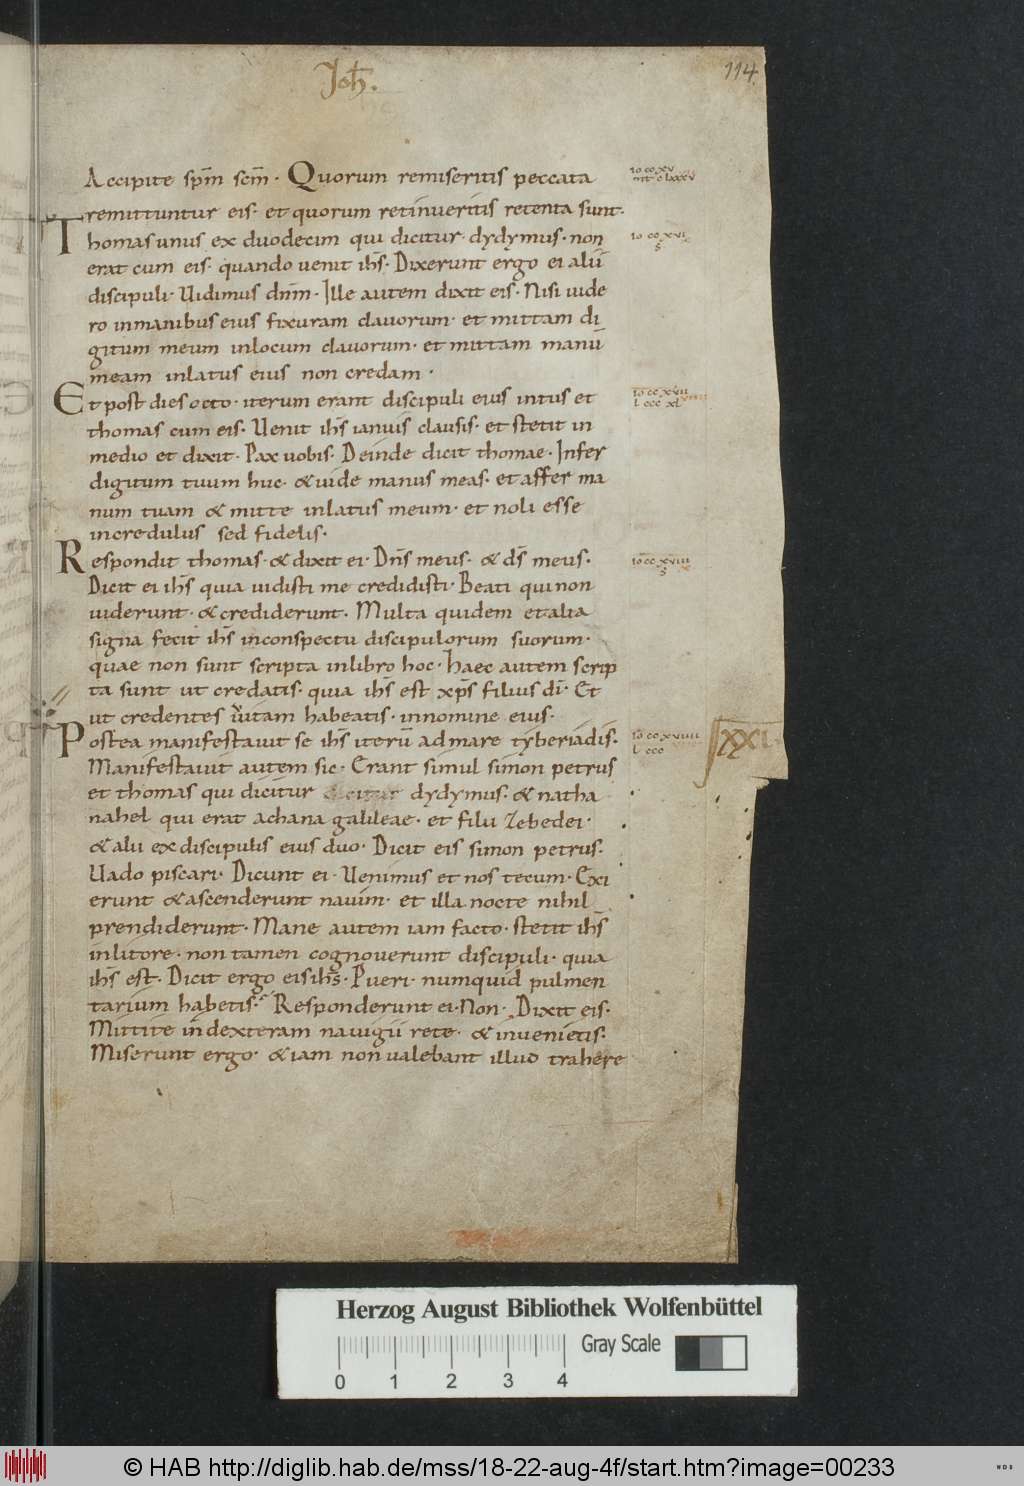 Joh̅.
114
Accipite sp̅m sc̅m· Quorum remiseritis peccata
remittuntur eis· et quorum retinueritis retenta sunt·
Thomas unus ex duodecim qui dicitur dydymus· non
erat cum eis· quando uenit ih̅s· Dixerunt ergo ei alii
discipuli· Uidimus dn̅m· Ille autem dixit eis· Nisi uide
ro inmanibus eius fixuram clauorum· et mittam di
gitum meum inlocum clauorum· et mittam manu̅
meam inlatus eius non credam·
Et post dies octo· iterum erant discipuli eius intus et
thomas cum eis· Uenit ih̅s ianuis clausis· et stetit in
medio et dixit· Pax uobis· Deinde dicit thomae· Infer
digitum tuum huc· & uide manus meas· et affer ma
num tuam & mitte inlatus meum· et noli esse
incredulus sed fidelis·
Respondit thomas· & dixit ei· Dn̅s meus· & ds̅ meus·
Dicit ei ih̅s quia uidisti me credidisti· Beati qui non
uiderunt· & crediderunt· Multa quidem et alia
signa fecit ih̅s inconspectu discipulorum suorum·
quae non sunt scripta inlibro hoc· haec autem scrip
ta sunt ut credatis· quia ih̅s est xp̅s filius di̅· Et
ut credentes uitam habeatis· innomine eius·
Postea manifestauit se ih̅s iteru̅ ad mare tyberiadis·
Manifestauit autem sic· Erant simul simon petrus
et thomas qui dicitur dydymus· & natha
nahel qui erat achana galileae· et filii zebedei·
& alii ex discipulis eius duo· Dicit eis simon petrus·
Uado piscari· Dicunt ei· Uenimus et nos tecum· Exi
erunt & ascenderunt nauim· et illa nocte nihil
prendiderunt· Mane autem iam facto· stetit ih̅s
inlitore· non tamen cognouerunt discipuli· quia
ih̅s est· Dicit ergo eis ih̅s· Pueri· numquid pulmen
tarium habetis· Responderunt ei· Non· Dixit eis·
Mittite in dexteram nauigii rete· & inuenietis·
Miserunt ergo· & iam non ualebant illud trahere
io cc xv
mt c lxxxv
io cc xvi
io cc xvii
l ccc xl
io cc xviii
io cc xviiii
l ccc
XXI
Herzog August Bibliothek Wolfenbüttel
Gray Scale
0 1 2 3 4
© HAB http://diglib.hab.de/mss/18-22-aug-4f/start.htm?image=00233